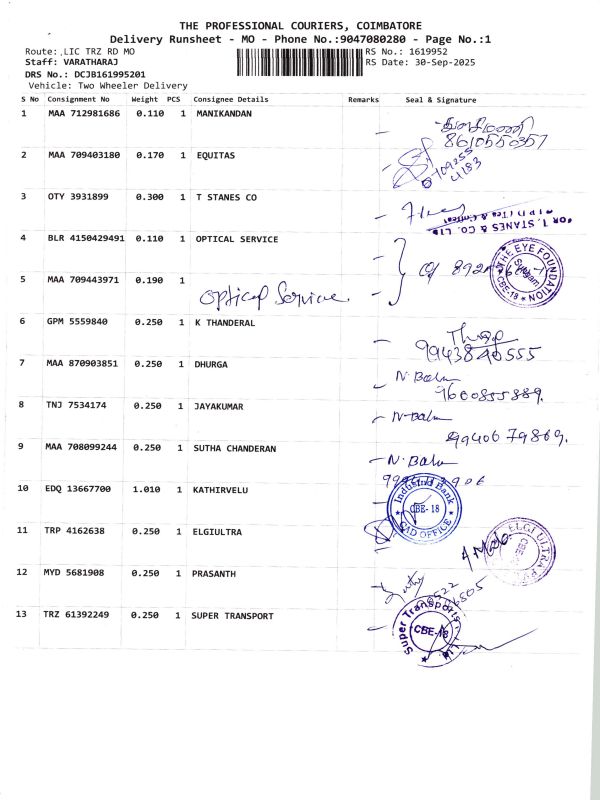 THE PROFESSIONAL COURIERS, COIMBATORE
Delivery Runsheet - MO - Phone No.:9047080280 - Page No.:1
Route: LIC TRZ RD MO RS No.: 1619952
Staff: VARATHARAJ RS Date: 30-Sep-2025
DRS No.: DCJB161995201
Vehicle: Two Wheeler Delivery
S No Consignment No Weight PCS Consignee Details Remarks Seal & Signature
1 MAA 712981686 0.110 1 MANIKANDAN
2 MAA 709403180 0.170 1 EQUITAS
3 OTY 3931899 0.300 1 T STANES CO
FOR T. STANES & CO. LTD
4 BLR 4150429491 0.110 1 OPTICAL SERVICE
THE EYE FOUNDATION
CBE-18
5 MAA 709443971 0.190 1
Optical Service
6 GPM 5559840 0.250 1 K THANDERAL
9943840555
7 MAA 870903851 0.250 1 DHURGA
N. Balu
9600855889.
8 TNJ 7534174 0.250 1 JAYAKUMAR
N. Balu
9940679869.
9 MAA 708099244 0.250 1 SUTHA CHANDERAN
N. Balu
10 EDQ 13667700 1.010 1 KATHIRVELU
IndusInd Bank
CBE-18
CAD OFFICE
11 TRP 4162638 0.250 1 ELGIULTRA
ELGI ULTRA
CBE
12 MYD 5681908 0.250 1 PRASANTH
13 TRZ 61392249 0.250 1 SUPER TRANSPORT
Super Transports
CBE-18